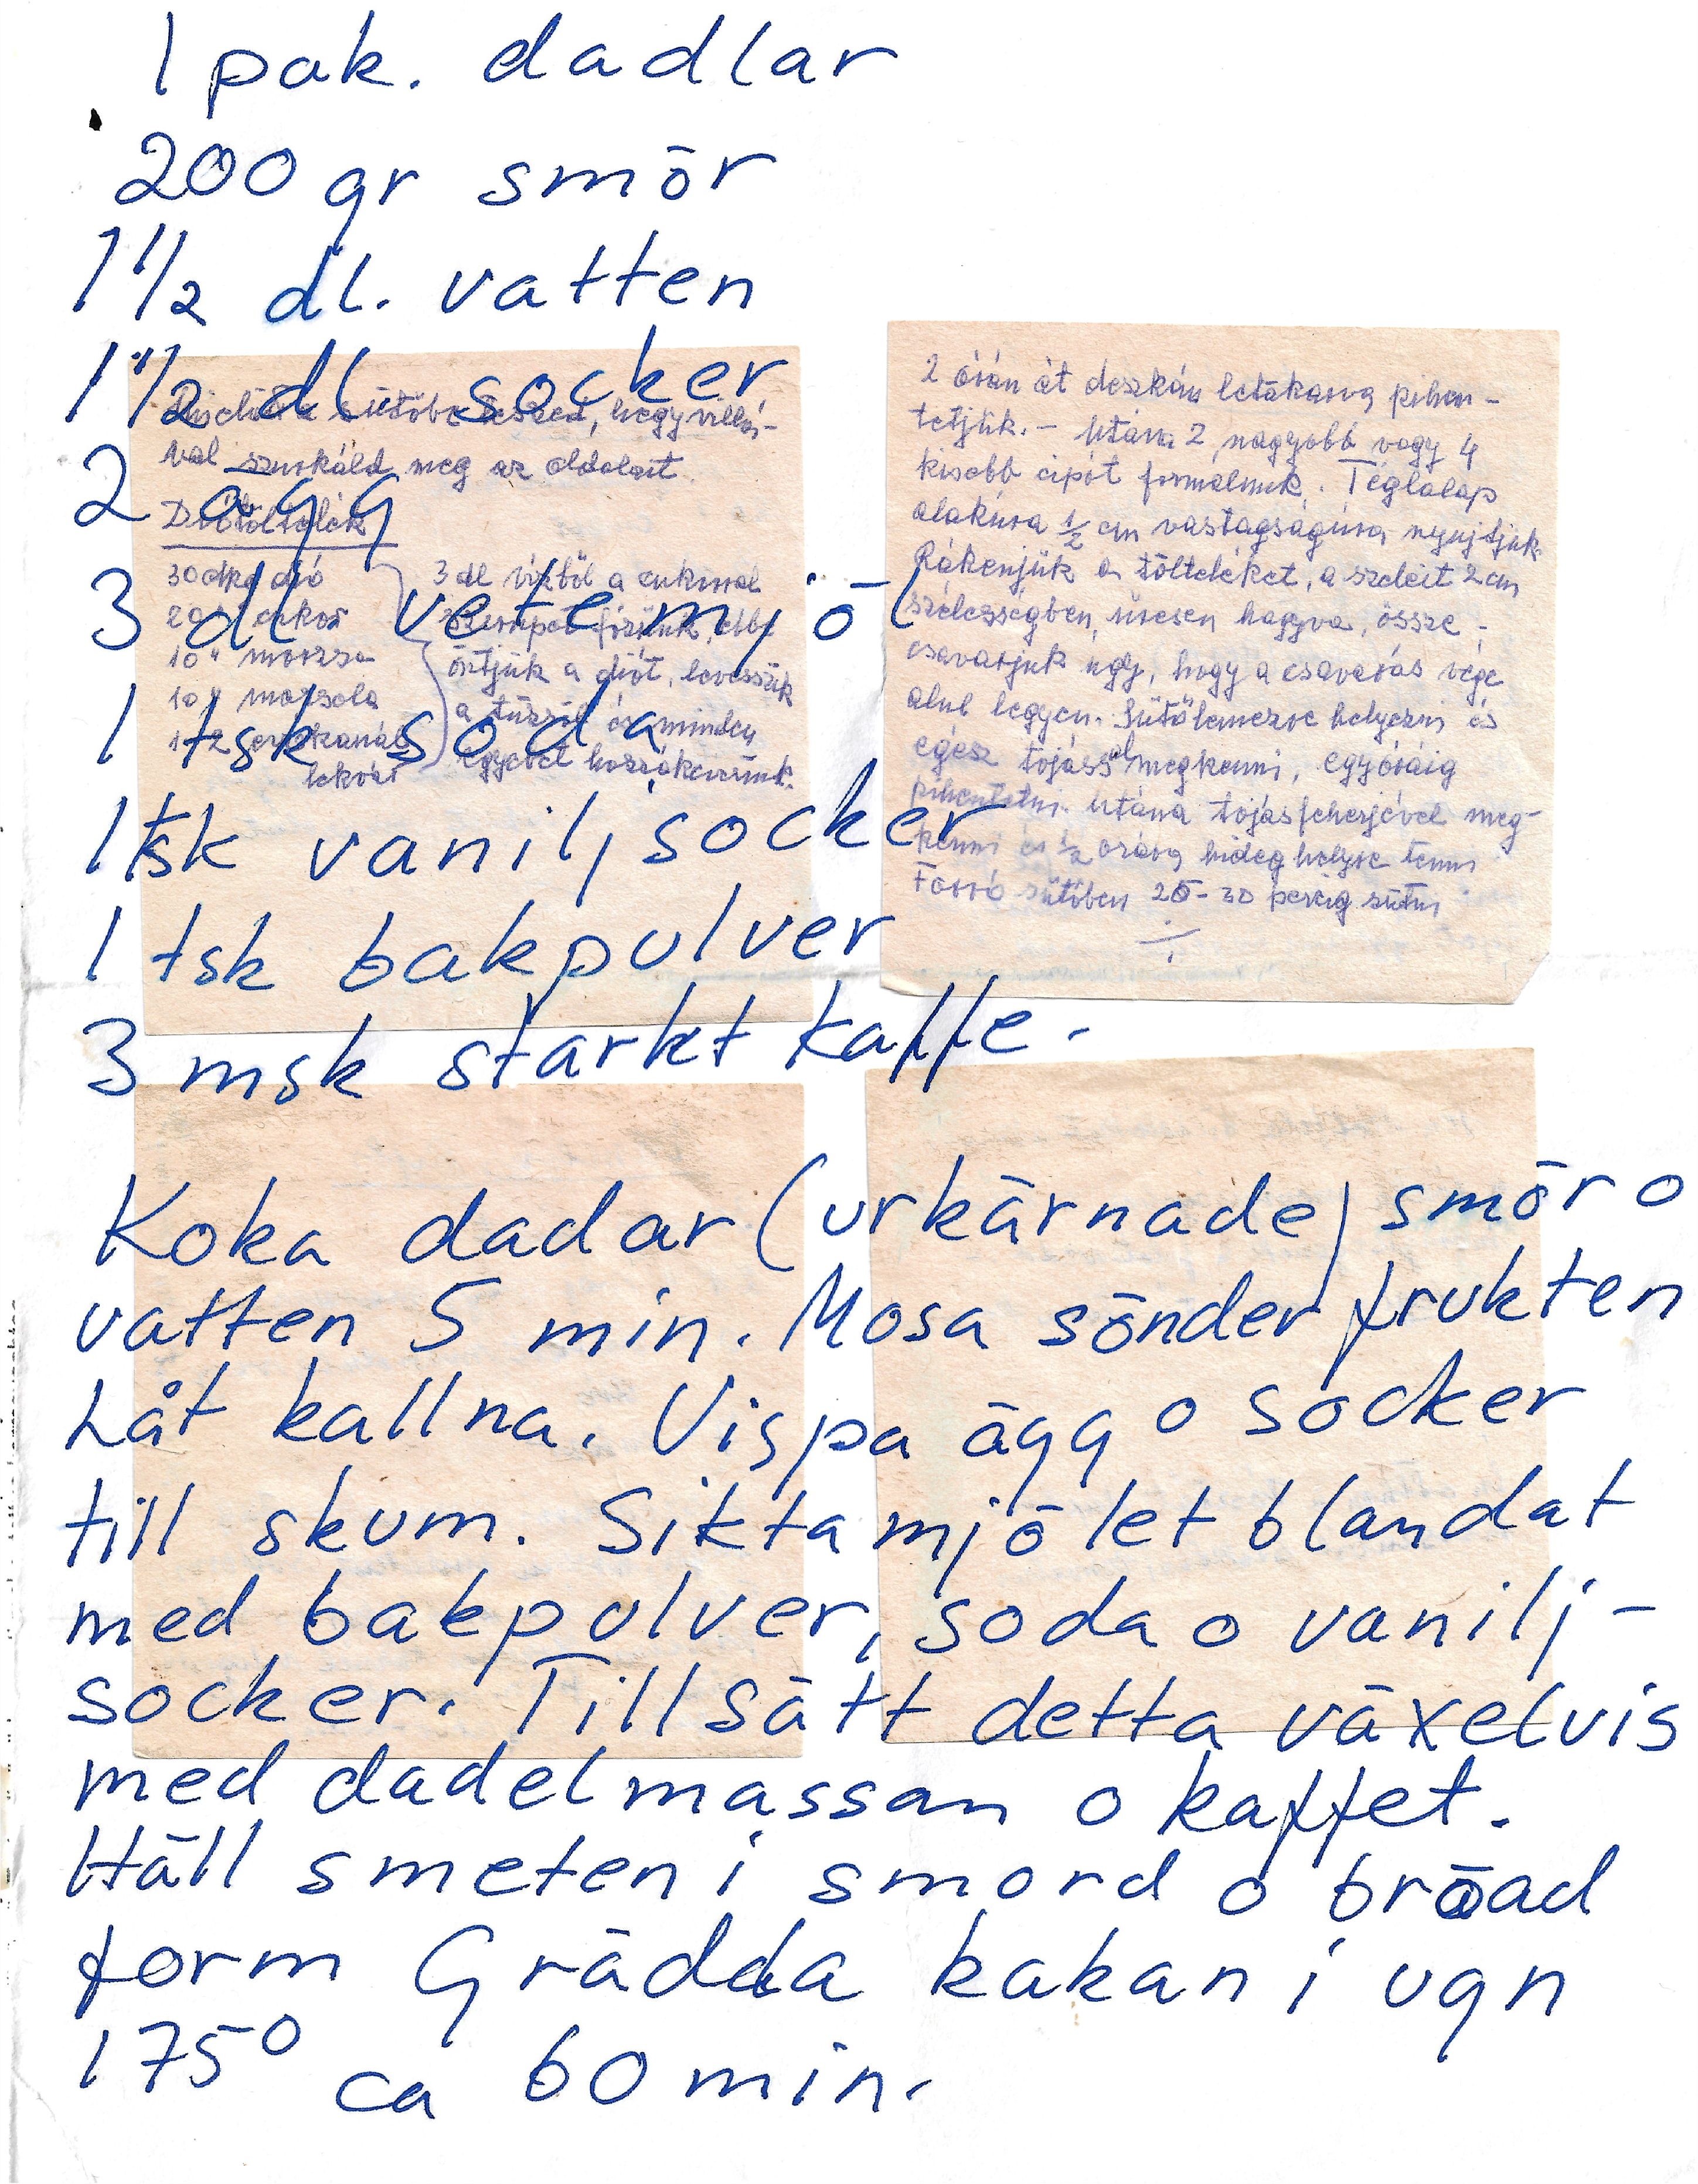 1 pak. dadlar
200 gr smör
1 1/2 dl. vatten
1 1/2 dl. socker
2 ägg
3 dl vetemjöl
1 tsk soda
1 tsk vaniljsocker
1 tsk bakpulver
3 msk starkt kaffe.
Koka dadar (urkärnade) smör o
vatten 5 min. Mosa sönder frukten
Låt kallna. Vispa ägg o socker
till skum. Sikta mjölet blandat
med bakpulver, soda o vanilj-
socker. Tillsätt detta växelvis
med dadelmassan o kaffet.
Häll smeten i smord o bröad
form Grädda kakan i ugn
175° ca 60 min.
sütőbe teszed, hegy villá-
val szurkáld meg az oldalait
Diótöltelék
30 dkg dió
20 " cukor
10 " morzsa
10 " mazsola
1-2 evőkanál
lekvár
3 dl vízből a cukorral
szirupot főzünk, ebbe
öntjük a diót, levesszük
a tűzről és minden
egyebet hozzákeverünk.
2 órán át deszkán letakarva pihen-
tetjük. - Utána 2 nagyobb vagy 4
kisebb cipót formálunk. Téglalap
alakúra 1/2 cm vastagságúra nyujtjuk.
Rákenjük a tölteléket, a szeleit 2 cm
szélességben üresen hagyva, össze-
csavarjuk úgy, hogy a csavarás vége
alul legyen. Sütőlemezre helyezni és
egész tojással megkenni, egy óráig
pihentetni. Utána tojásfehérjével meg-
kenni és 1/2 órára hideg helyre tenni
Forró sütőben 25-30 percig sütni